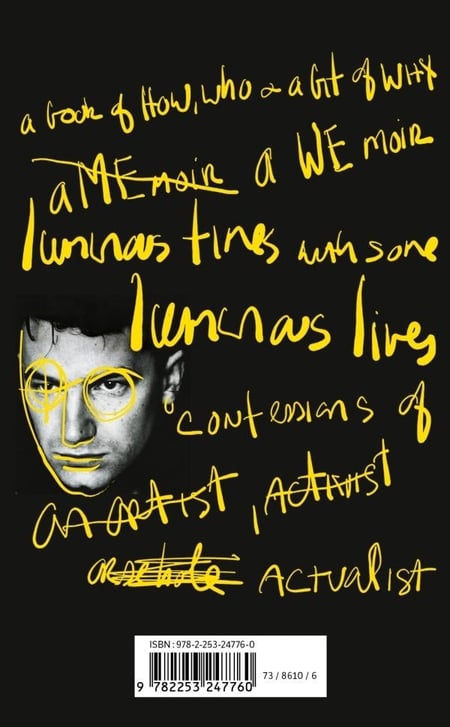 a book of HOW, WHO & a bit of WHY
a MEmoir a WE moir
luminous times with some
luminous lives
confessions of
an artist, Activist
arsehole ACTUAlIST
ISBN : 978-2-253-24776-0
9 782253 247760
73 / 8610 / 6